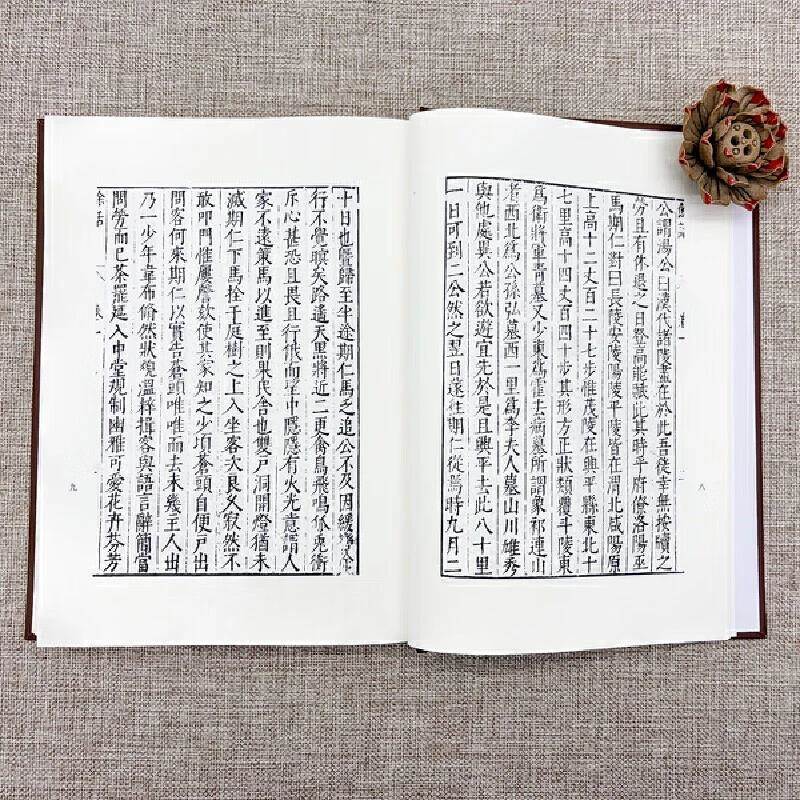 公謂湯公曰漢代諸陵盡在於此吾徒幸無按牘之
勞且有休退之日登高能賦此其時乎府僚洛陽巫
馬期仁對曰長陵安陵陽陵平陵皆在渭北咸陽原
上高十二丈百二十七步惟茂陵在興平縣東北十
七里高十四丈百四十步其形方正狀類覆斗陵東
爲衛將軍青墓又少東爲霍去病墓所謂象祁連山
者西北爲公孫弘墓西一里爲李夫人墓山川雄秀
與他處異公若欲遊宜先於是且興平去此八十里
一日可到二公然之翌日遠往期仁從焉時九月二
八
十日也暨歸至半途期仁馬乏追公不及因緩
行不覺暝矣路遙天黑將近二更禽鳥飛鳴狐兎衝
斥心甚恐且畏且行俄而望中隱隱有火光意謂人
家不遠策馬以進至則果民舍也雙戸洞開燈猶未
滅期仁下馬拴于庭樹之上入坐客次良久寂然不
敢叩門惟屢謦欬使其家知之少頃蒼頭自便戸出
問客何來期仁以實告蒼頭唯唯而去未幾主人出
乃一少年韋布翛然狀貌溫粹揖客與語言辭簡當
問勞而已茶罷延入中堂規制幽雅可愛花卉芬芳
餘話 卷一
九